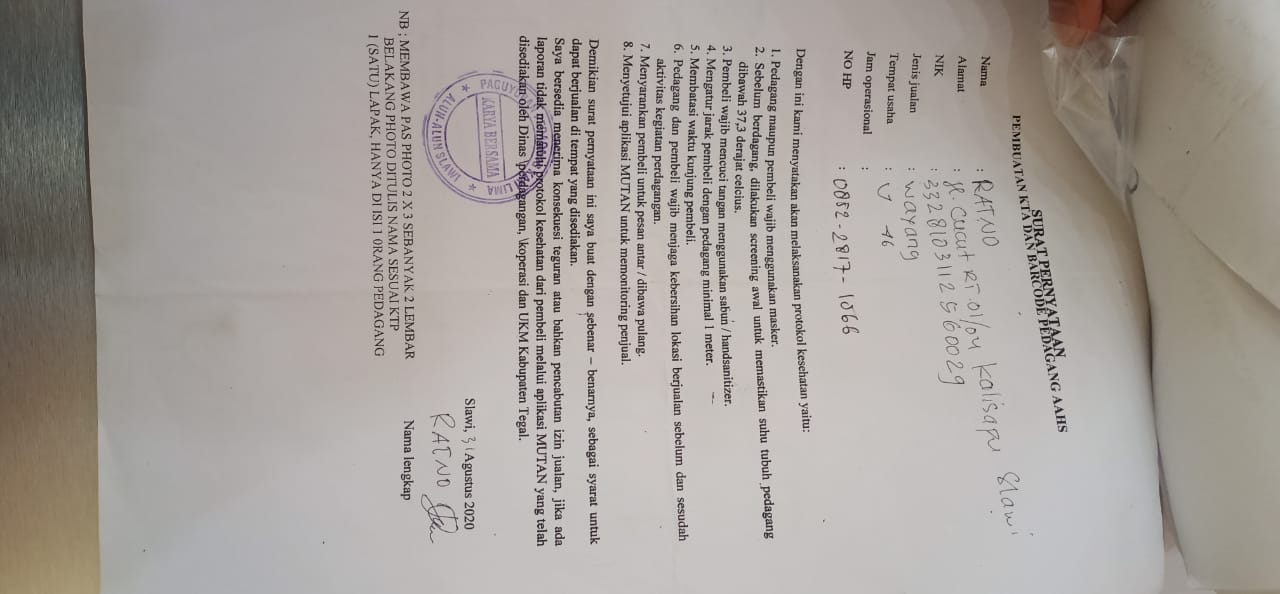 SURAT PERNYATAAN
PEMBUATAN KTA DAN BARCODE PEDAGANG AAHS
Nama : RATNO
Alamat : Jl. Cucut RT.01/04 Kalisapu Slawi
NIK : 3328103112560029
Jenis jualan : wayang
Tempat usaha : U 46
Jam operasional :
NO HP : 0852-2817-1066
Dengan ini kami menyatakan akan melaksanakan protokol kesehatan yaitu:
1. Pedagang maupun pembeli wajib menggunakan masker.
2. Sebelum berdagang, dilakukan screening awal untuk memastikan suhu tubuh pedagang
dibawah 37,3 derajat celcius.
3. Pembeli wajib mencuci tangan menggunakan sabun / handsanitizer.
4. Mengatur jarak pembeli dengan pedagang minimal 1 meter.
5. Membatasi waktu kunjung pembeli.
6. Pedagang dan pembeli wajib menjaga kebersihan lokasi berjualan sebelum dan sesudah
aktivitas kegiatan perdagangan.
7. Menyarankan pembeli untuk pesan antar / dibawa pulang.
8. Menyetujui aplikasi MUTAN untuk memonitoring penjual.
Demikian surat pernyataan ini saya buat dengan sebenar – benarnya, sebagai syarat untuk
dapat berjualan di tempat yang disediakan.
Saya bersedia menerima konsekuesi teguran atau bahkan pencabutan izin jualan, jika ada
laporan tidak mematuhi protokol kesehatan dari pembeli melalui aplikasi MUTAN yang telah
disediakan oleh Dinas \perdagangan, \koperasi dan UKM Kabupaten Tegal.
KARYA BERSAMA
ALUN-ALUN SLAWI
Slawi, 31 Agustus 2020
RATNO
Nama lengkap
NB : MEMBAWA PAS PHOTO 2 X 3 SEBANYAK 2 LEMBAR
BELAKANG PHOTO DITULIS NAMA SESUAI KTP
1 (SATU) LAPAK, HANYA DI ISI 1 0RANG PEDAGANG